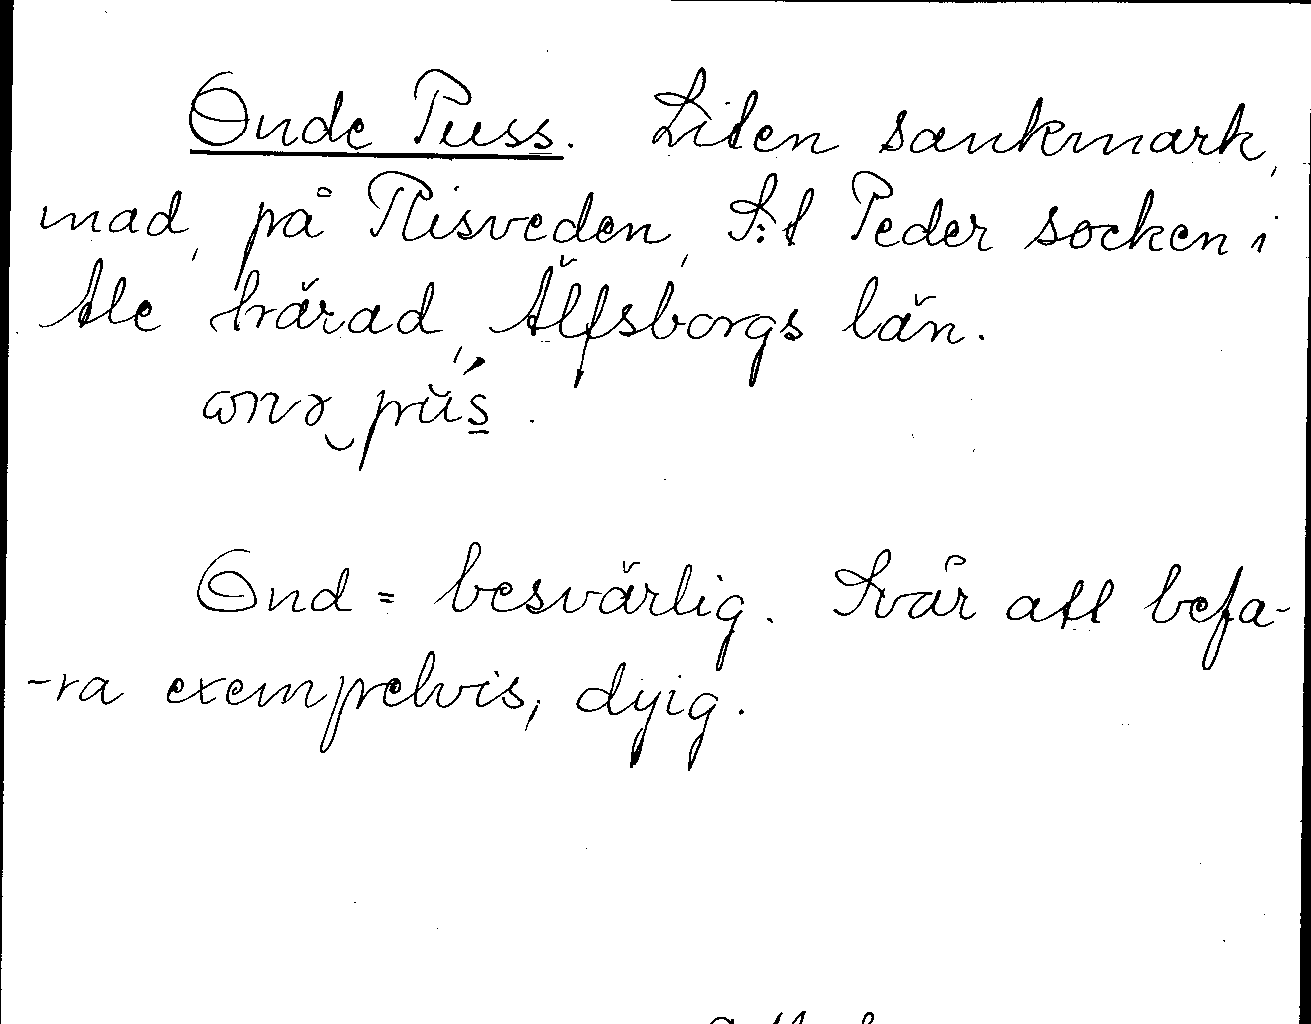 Onde Puss. Liten sankmark,
mad, på Risveden, S:t Peder socken i
Ale härad, Älfsborgs län.
Ond = besvärlig. Svår att befa-
-ra exempelvis, dyig.